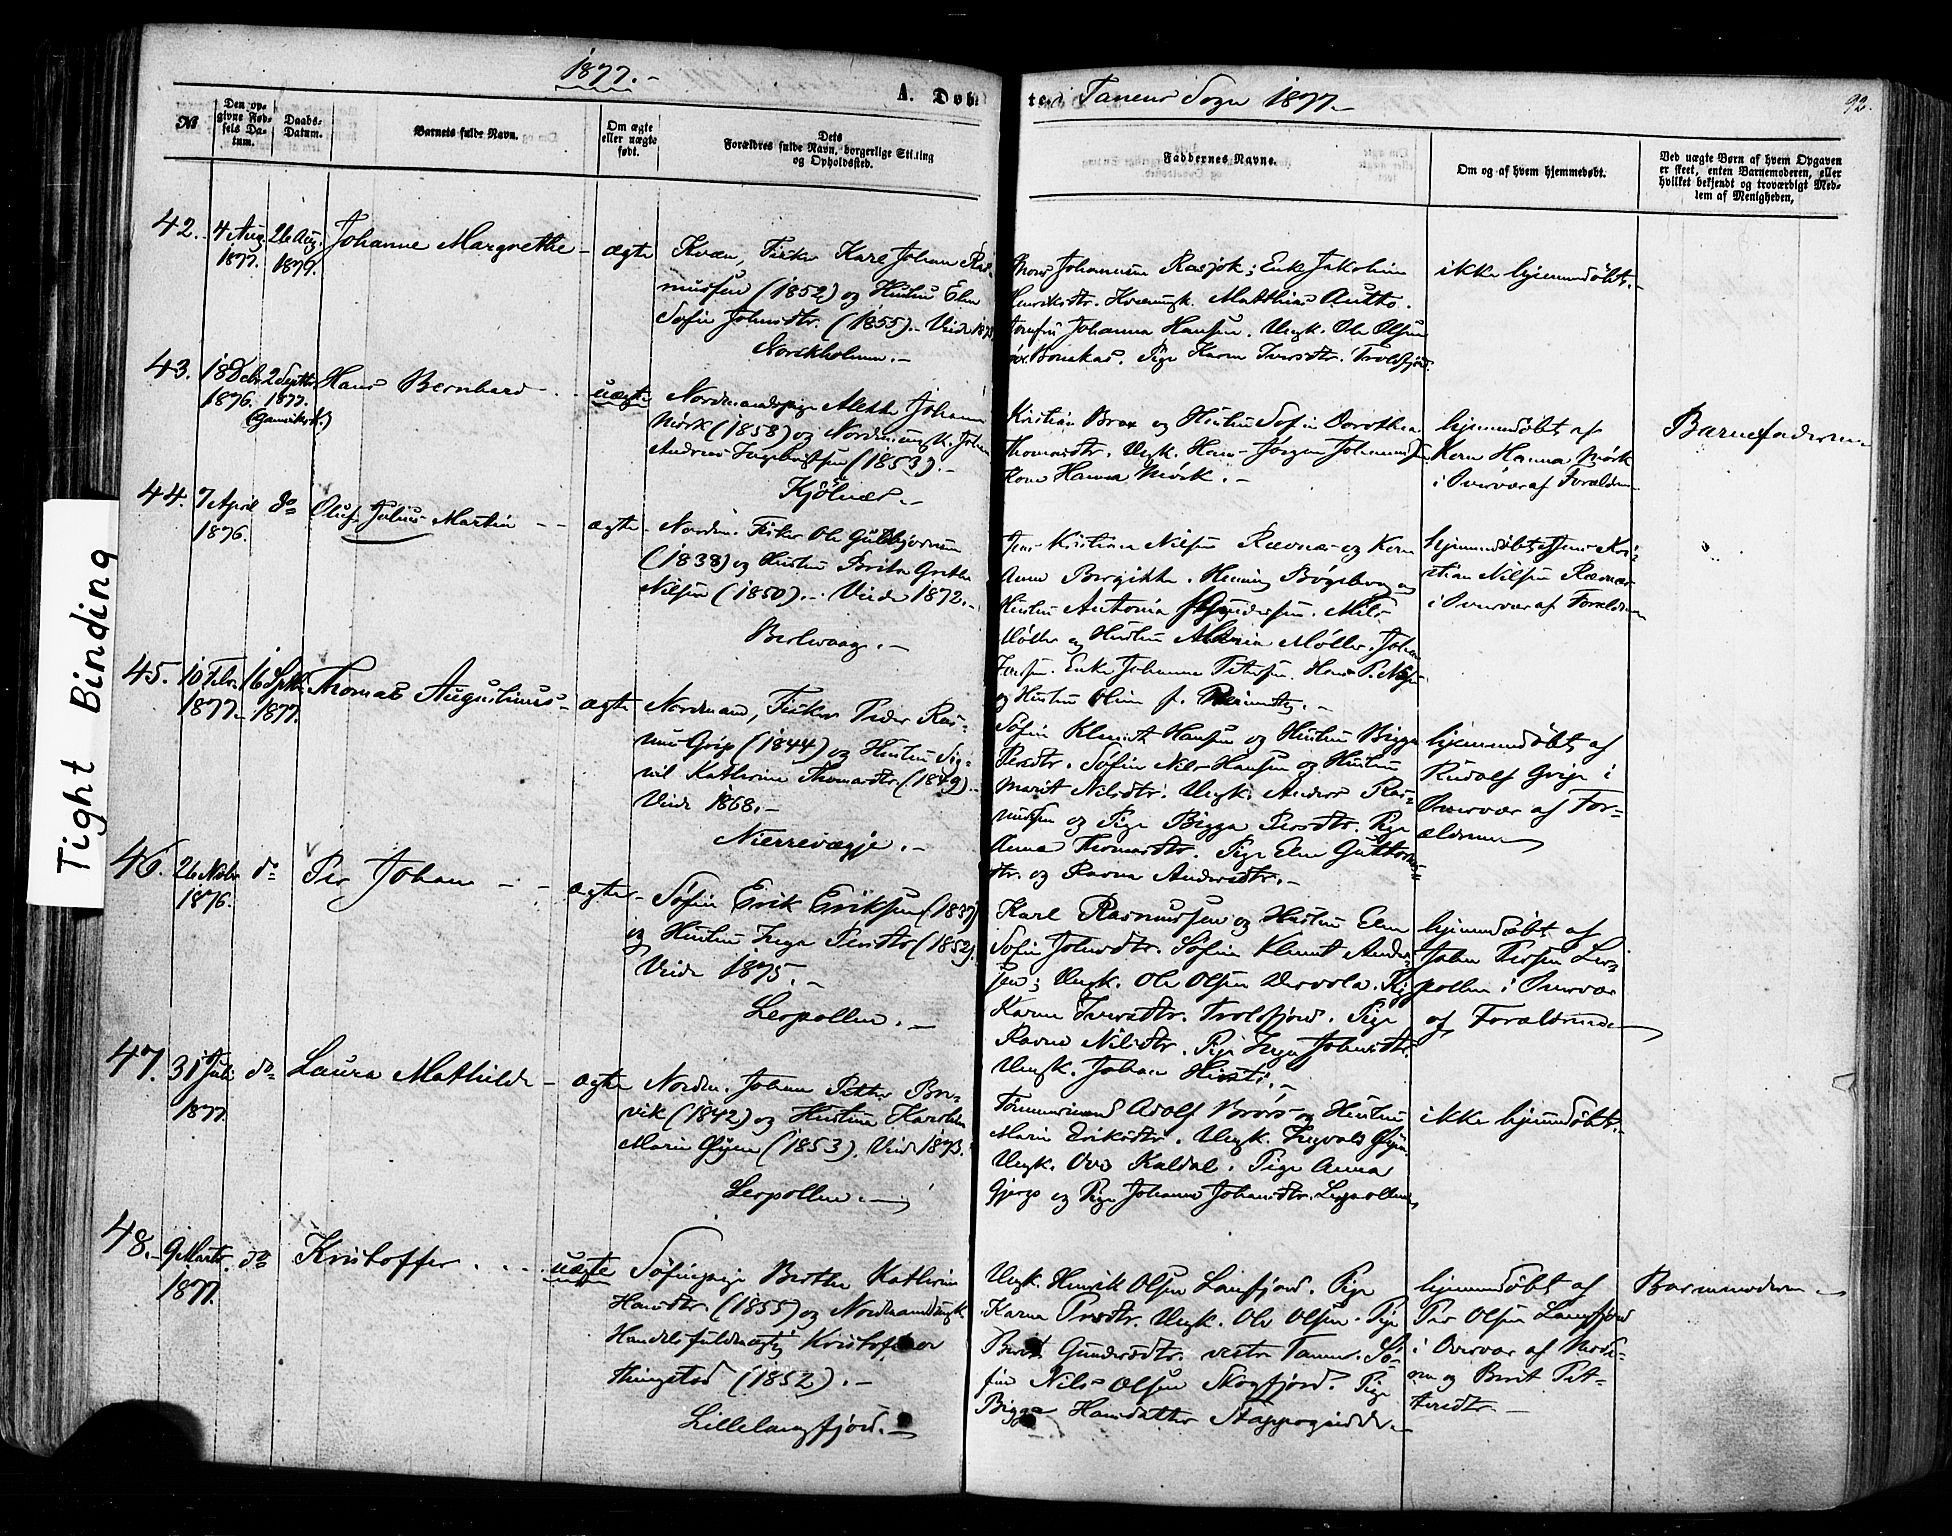 1877.-
A. Døbte
Tanens Sogn 1877.-
92.
№
Den opgivne Fødsels Datum.
Daabs-Datum.
Barnets fulde Navn.
Om ægte eller uægte født.
Dets Forældres fulde Navn, borgerlige Stilling og Opholdssted.
Faddernes Navne.
Om og af hvem hjemmedøbt.
Ved uægte Børn af hvem Opgaven er skeet, enten Barnemoderen, eller hvilket bekjendt og troværdigt Medlem af Menigheden,
42.
4 Aug. 1877.
26 Aug. 1877.
Johanne Margrethe -
ægte
Kvæn, Fisker Karl Johan Ras-
mussen (1852) og Hustru Elen
Sofie Johnsdtr. (1855). - Viede
Stockholmen. -
Johannesen Rasjok; Enke Jakobine
Henriksdtr. Kvænungk. Matthias Autto.
Jomfru Johanna Hansen. Ungk. Ole Olsen
Bonakas. Pige Karen Iversdtr. Troldfjord.
ikke hjemmedøbt.-
43.
18 Debr. 1876.
2 Septbr. 1877. (Gamvik K.)
Hans Bernhard - . .
uægte
Nordmandspige Alette Johanne
Mörk (1858) og Nordm. ungk. Johan
Andreas Ingebrigtsen (1853). -
Kjölnes. -
Kristian Brox og Hustru Sofie Dorothea
Thomasdtr. Ungk. Hans Jørgen Johannesen
Kone Hanna Mörk. -
hjemmedøbt af
Kone Hanna Mörk
i Overvær af Forældrene
Barnefaderen
44.
7 April 1876.
do
Oluf Julius Martin - -
ægte -
Nordm. Fisker Ole Guldbjørnsen
(1838) og Hustru Brita Grethe
Nilsen (1850). - Viede 1872. -
Berlevaag. -
Jens Kristian Nilsen Rævnæs og Kone
Anne Birgitte. Henning Bögeberg og
Hustru Antonia Gundersen. Nils
Möller og Hustru Maria Möller. Johan
Jensen. Enke Johanna Petersen. Hans P.
og Hustru Oline f.
hjemmedøbt af Jens Kri-
stian Nilsen Rævnæs
i Overvær af Forældrene
45.
10 Febr. 1877.-
16 Septbr. 1877.
Thomas Augustinus -
ægte
Nordmand, Fisker Peder Ras-
mus Grip (1844) og Hustru Sig-
nil Kathrine Thomasdtr. (1849). -
Viede 1868. -
Nierrevægje. -
Søfin Klemet Hansen og Hustru Bigga
Persdtr. Søfin Nils Hansen og Hustru
Marit Nilsdtr. Ungk. Anders Ras-
mussen og Pige Bigga Persdtr. Pige
Anna Thomasdtr. Pige Elen Guttorms-
dtr. og Ravna Andersdtr. -
hjemmedøbt af
Rudolf Grip i
Overvær af For-
ældrene
46.
26 Nobr. 1876.
do
Per Johan - -
ægte -
Søfin Erik Eriksen (1837)
og Hustru Inga Persdtr. (1852).
Viede 1875. -
Lerpollen. -
Karl Rasmussen og Hustru Elen
Sofie Johnsdtr. Søfin Klemet Ander-
sen; Ungk. Ole Olsen Vervola. Pige
Karen Iversdtr. Troldfjord. Pige
Ravna Nilsdtr. Pige Inga Johnsdtr.
Ungk. Johan Hirsti. -
hjemmedøbt af
John Persen Ler-
pollen i Overvær
af Forældrene
47.
31 Juli 1877.
do
Laura Mathilde -
ægte
Nordm. Johan Petter Bre-
vik (1842) og Hustru Karoline
Marie Øyen (1853). Viede 1873.
Lerpollen. -
Tømmermand Adolf Brors og Hustru
Marie Eriksdtr. Ungk. Ingvald Øyen
Ungk. Ove Kaldal. Pige Anna
Gjergo og Pige Johanna Johansdtr. Lerpollen
ikke hjemmedøbt. -
48. -
9 Marts 1877.
do
Kristoffer. . . -
uægte
Søfinpige Berthe Kathrine
Hansdtr. (1855) og Nordmandsungk.
Handelsfuldmægtig Kristoffer
Ringstad (1852). -
Lillelangfjord. -
Ungk. Henrik Olsen Langfjord. Pige
Karen Persdtr. Ungk. Ole Olsen. Pige
Beret Gundersdtr. vestre Tanen. Sø-
fin Nils Olsen Skogfjord. Pige
Bigga Hansdatter Stappogiedde
hjemmedøbt af
Per Olsen Langfjord
i Overvær af Mode-
ren og Berit Pet-
tersdtr. -
Barnemoderen -
Tight Binding